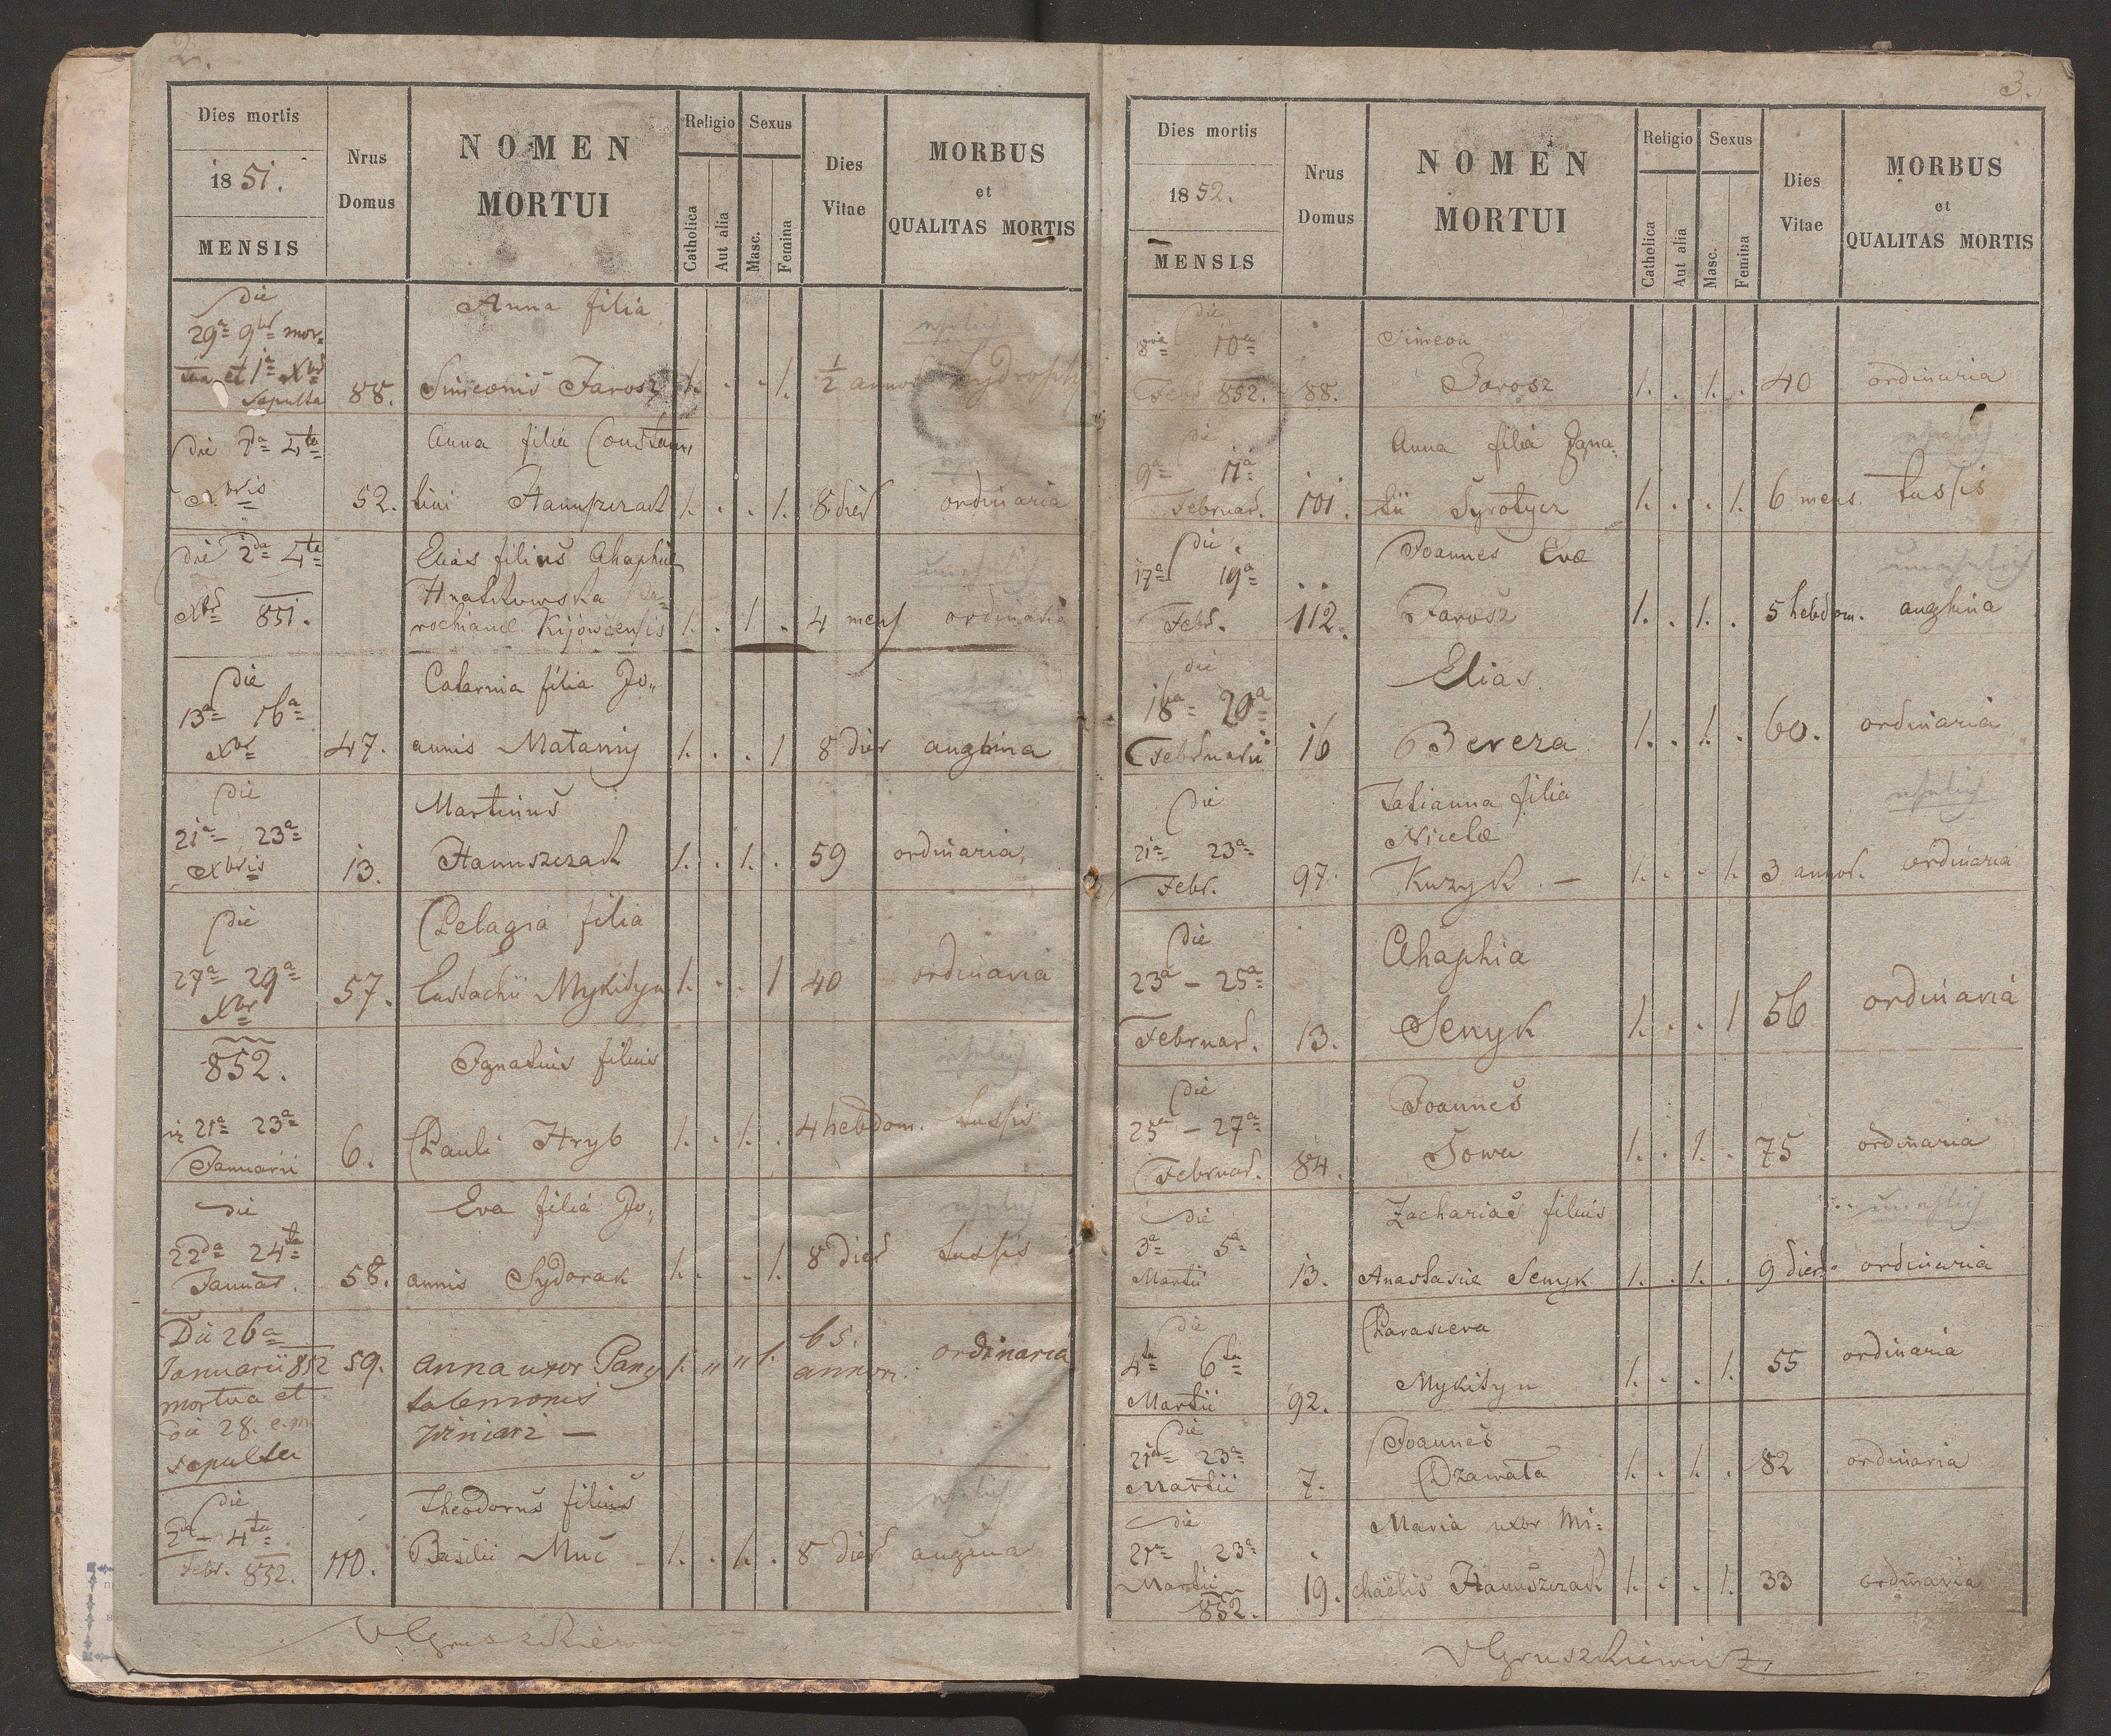 2.
Dies mortis
1851.
MENSIS
Nrus
Domus
NOMEN
MORTUI
Religio
Catholica
Aut alia
Sexus
Masc.
Femina
Dies
Vitae
MORBUS
et
QUALITAS MORTIS
die
29ª 9br mor=
tua et 1ª Xbr
sepulta
88.
Anna filia
Simeonis Jarosz
1. . . 1.
½ annor
die 2da 4ta
Xbris
52.
Anna filia Constan,,
tini Hanuszczak
1. . . 1.
8 dier
ordinaria
die 2da 4ta
Xbr 851.
Elias filius Ahaphiae
Hnatkowska Pa=
rochianae Kijowcensis
1. . 1. .
4 mens
ordinaria
die
13ª 16ª
Xbr
47.
Catarina filia Jo,,
annis Mataniy
1. . . 1
8 dier
anghina
die
21ª – 23ª
Xbris
13.
Martinus
Hanuszczak
1. . 1. .
59
ordinaria,
die
27ª 29ª
Xbr
57.
Pelagia filia
Eustachii Mykityn
1. . . 1
40
ordinaria
852.
21ª 23ª
Januarii
6.
Ignatius filius
Pauli Hryb
1. . 1. .
4 hebdom.
tussis
die
22da 24ta
Januar.
58.
Eva filia Jo,,
annis Sydorak
1. . . 1.
8 dier
tussis
Die 26ª
Januarii 852
mortua et
die 28. e.m.
sepulta
59.
Anna uxor Pan,,
talemonis
Winiarz —
1. " " 1.
65.
annor.
ordinaria
die
2da – 4ta
Febr. 852.
110.
Theodorus filius
Basilii Muc
1. . 1. .
8 dier
angina
3.
Dies mortis
1852.
MENSIS
Nrus
Domus
NOMEN
MORTUI
Religio
Catholica
Aut alia
Sexus
Masc.
Femina
Dies
Vitae
MORBUS
et
QUALITAS MORTIS
die
8va 10ª
Febr 852.
88.
Simeon
Jarosz
1. . 1. .
40
ordinaria
die
9ª 11ª
Februar.
101.
Anna filia Igna,,
tii Syrotycz
1. . . 1.
6 mens.
tussis
die
17ª 19ª
Febr.
112.
Joannes Evae
Jarosz
1. . 1. .
5 hebdom.
anghina
die
18ª 20ª
Februarii
16
Elias
Bereza
1. . 1. .
60.
ordinaria
die
21ª 23ª
Febr.
97.
Tatianna filia
Nicolae
Kuzyk. —
1. . . 1.
3 annor.
ordinaria
die
23ª – 25ª
Februar.
13.
Ahaphia
Senyk
1. . . 1
56
ordinaria
die
25ª – 27ª
Februar.
84.
Joannes
Sowa
1. . 1. .
75
ordinaria
die
3ª 5ª
Martii
13.
Zacharias filius
Anastasiae Senyk
1. . 1. .
9 dier.
ordinaria
die
4ta 6ta
Martii
92.
Parasceva
Mykityn
1. . . 1.
55
ordinaria
die
21ª 23ª
Martii
7.
Joannes
Dzawała
1. . 1. .
82
ordinaria
die
21ª 23ª
Martii
852.
19.
Maria uxor Mi=
chaelis Hanuszczak
1. . . 1.
33
ordinaria
VGruszkiewicz